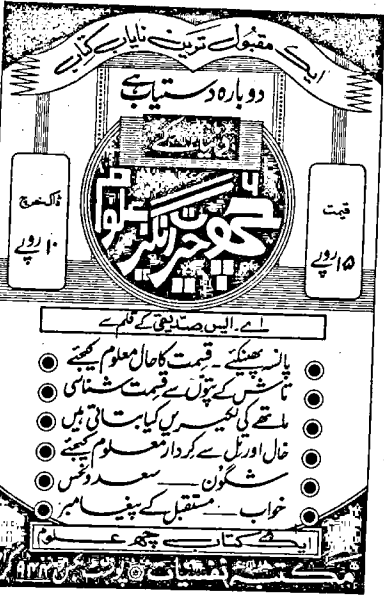 ایک مقبول ترین نایاب کتاب
دوبارہ دستیاب ہے
۶
حیرت انگیز علوم
ڈاک خرچ
۱۰ روپے
قیمت
۱۵ روپے
اے۔ ایس صدیقی کے قلم سے
پانسہ پھینکئے۔ قسمت کا حال معلوم کیجئے
تاش کے پتوں سے قسمت شناسی
ماتھے کی لکیریں کیا بتاتی ہیں
خال اور تل سے کردار معلوم کیجئے
شگون ــــ سعد و نحس
خواب ــــ مستقبل کے پیغامبر
ایک کتاب چھ علوم
مکتبہ نفسیات پوسٹ بکس ۹۴۴